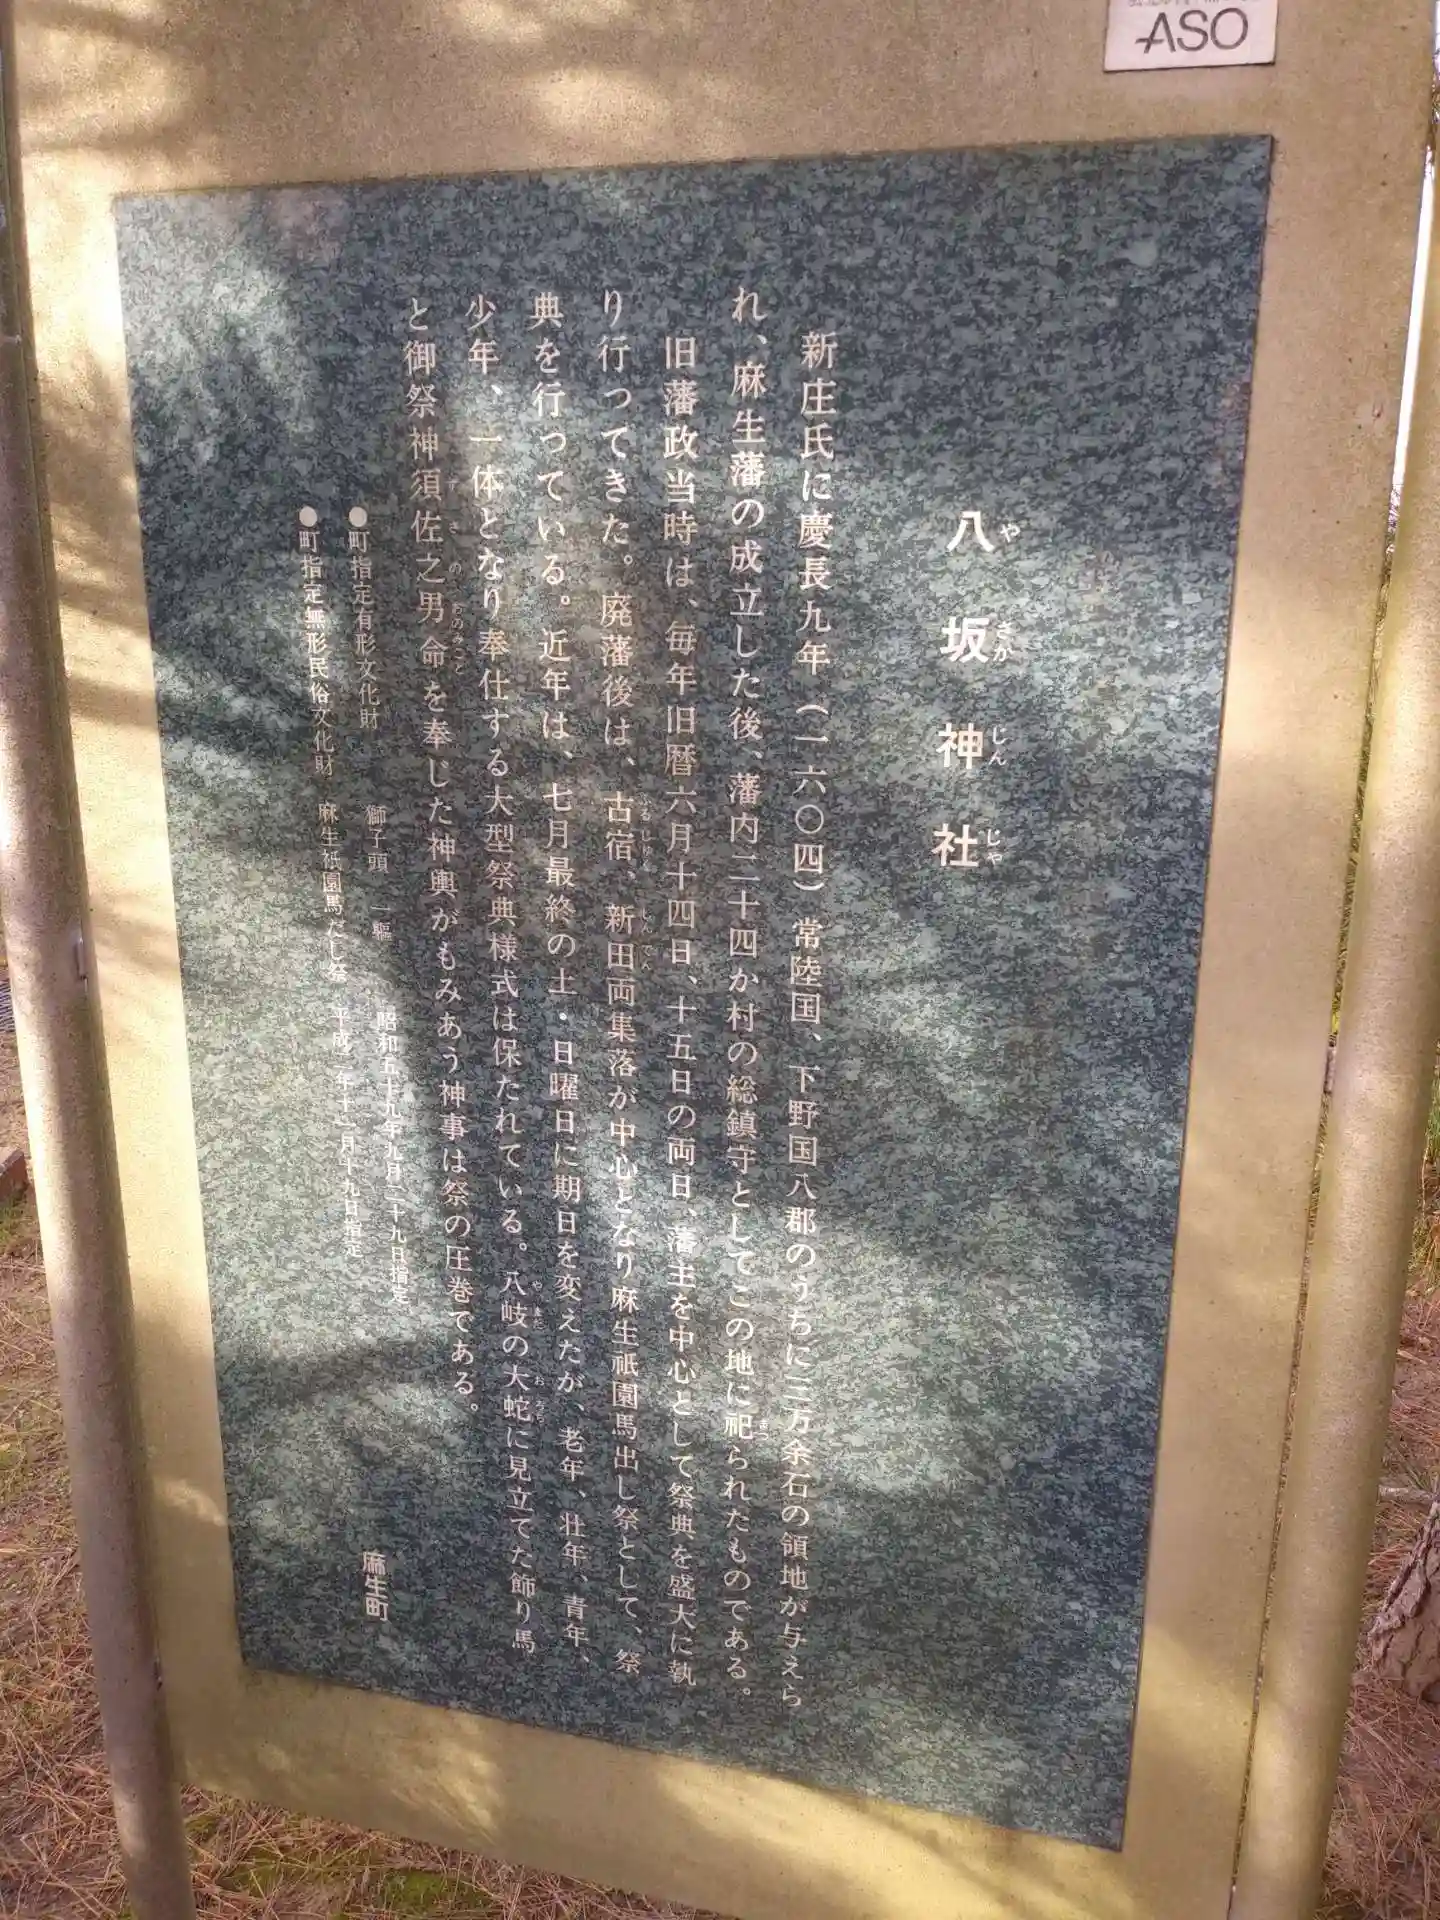 ASO
八坂神社
やさかじんじゃ
新庄氏に慶長九年（一六〇四）常陸国、下野国八郡のうちに三万余石の領地が与えら
れ、麻生藩の成立した後、藩内二十四か村の総鎮守としてこの地に祀られたものである。
まつ
旧藩政当時は、毎年旧暦六月十四日、十五日の両日、藩主を中心として祭典を盛大に執
り行ってきた。廃藩後は、古宿、新田両集落が中心となり麻生祇園馬出し祭として、祭
ふるじゅく しんでん
典を行っている。近年は、七月最終の土・日曜日に期日を変えたが、老年、壮年、青年、
少年、一体となり奉仕する大型祭典様式は保たれている。八岐の大蛇に見立てた飾り馬
やまた おろち
と御祭神須佐之男命を奉じた神輿がもみあう神事は祭の圧巻である。
すさのおのみこと
●町指定有形文化財 獅子頭 一軀 昭和五十九年九月二十九日指定
●町指定無形民俗文化財 麻生祇園馬だし祭 平成二年十一月十九日指定
麻生町